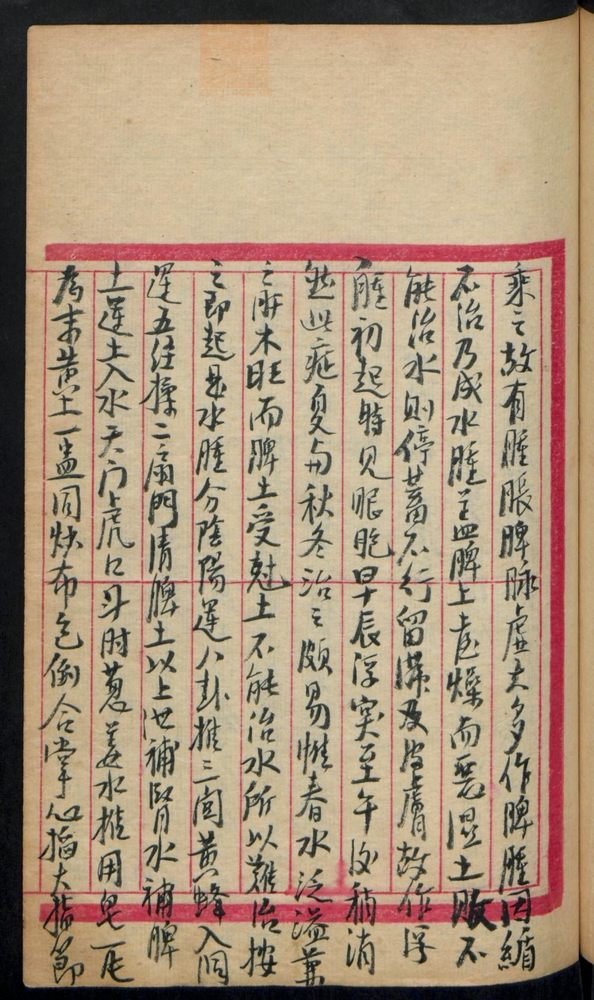 乘之故有腫脹脾脉虛大多作脾腫因緟
不治乃成水腫盖脾土喜燥而惡濕土敗不
能治水則停蓄不行留滯及皮膚故作浮
腫初起時見眼胞早辰浮突至午後稍消
然此症夏与秋冬治之頗易惟春水泛溢兼
之肝木旺而脾土受尅土不能治水所以難治按
之即起是水腫分陰陽運八卦推三関黄蜂入洞
運五經揉二扇門清脾土以上泄補腎水補脾
土運土入水天门虎口斗肘葱姜水推用皂一
為末黄土一盏同炒布包倒合掌心掐大指節